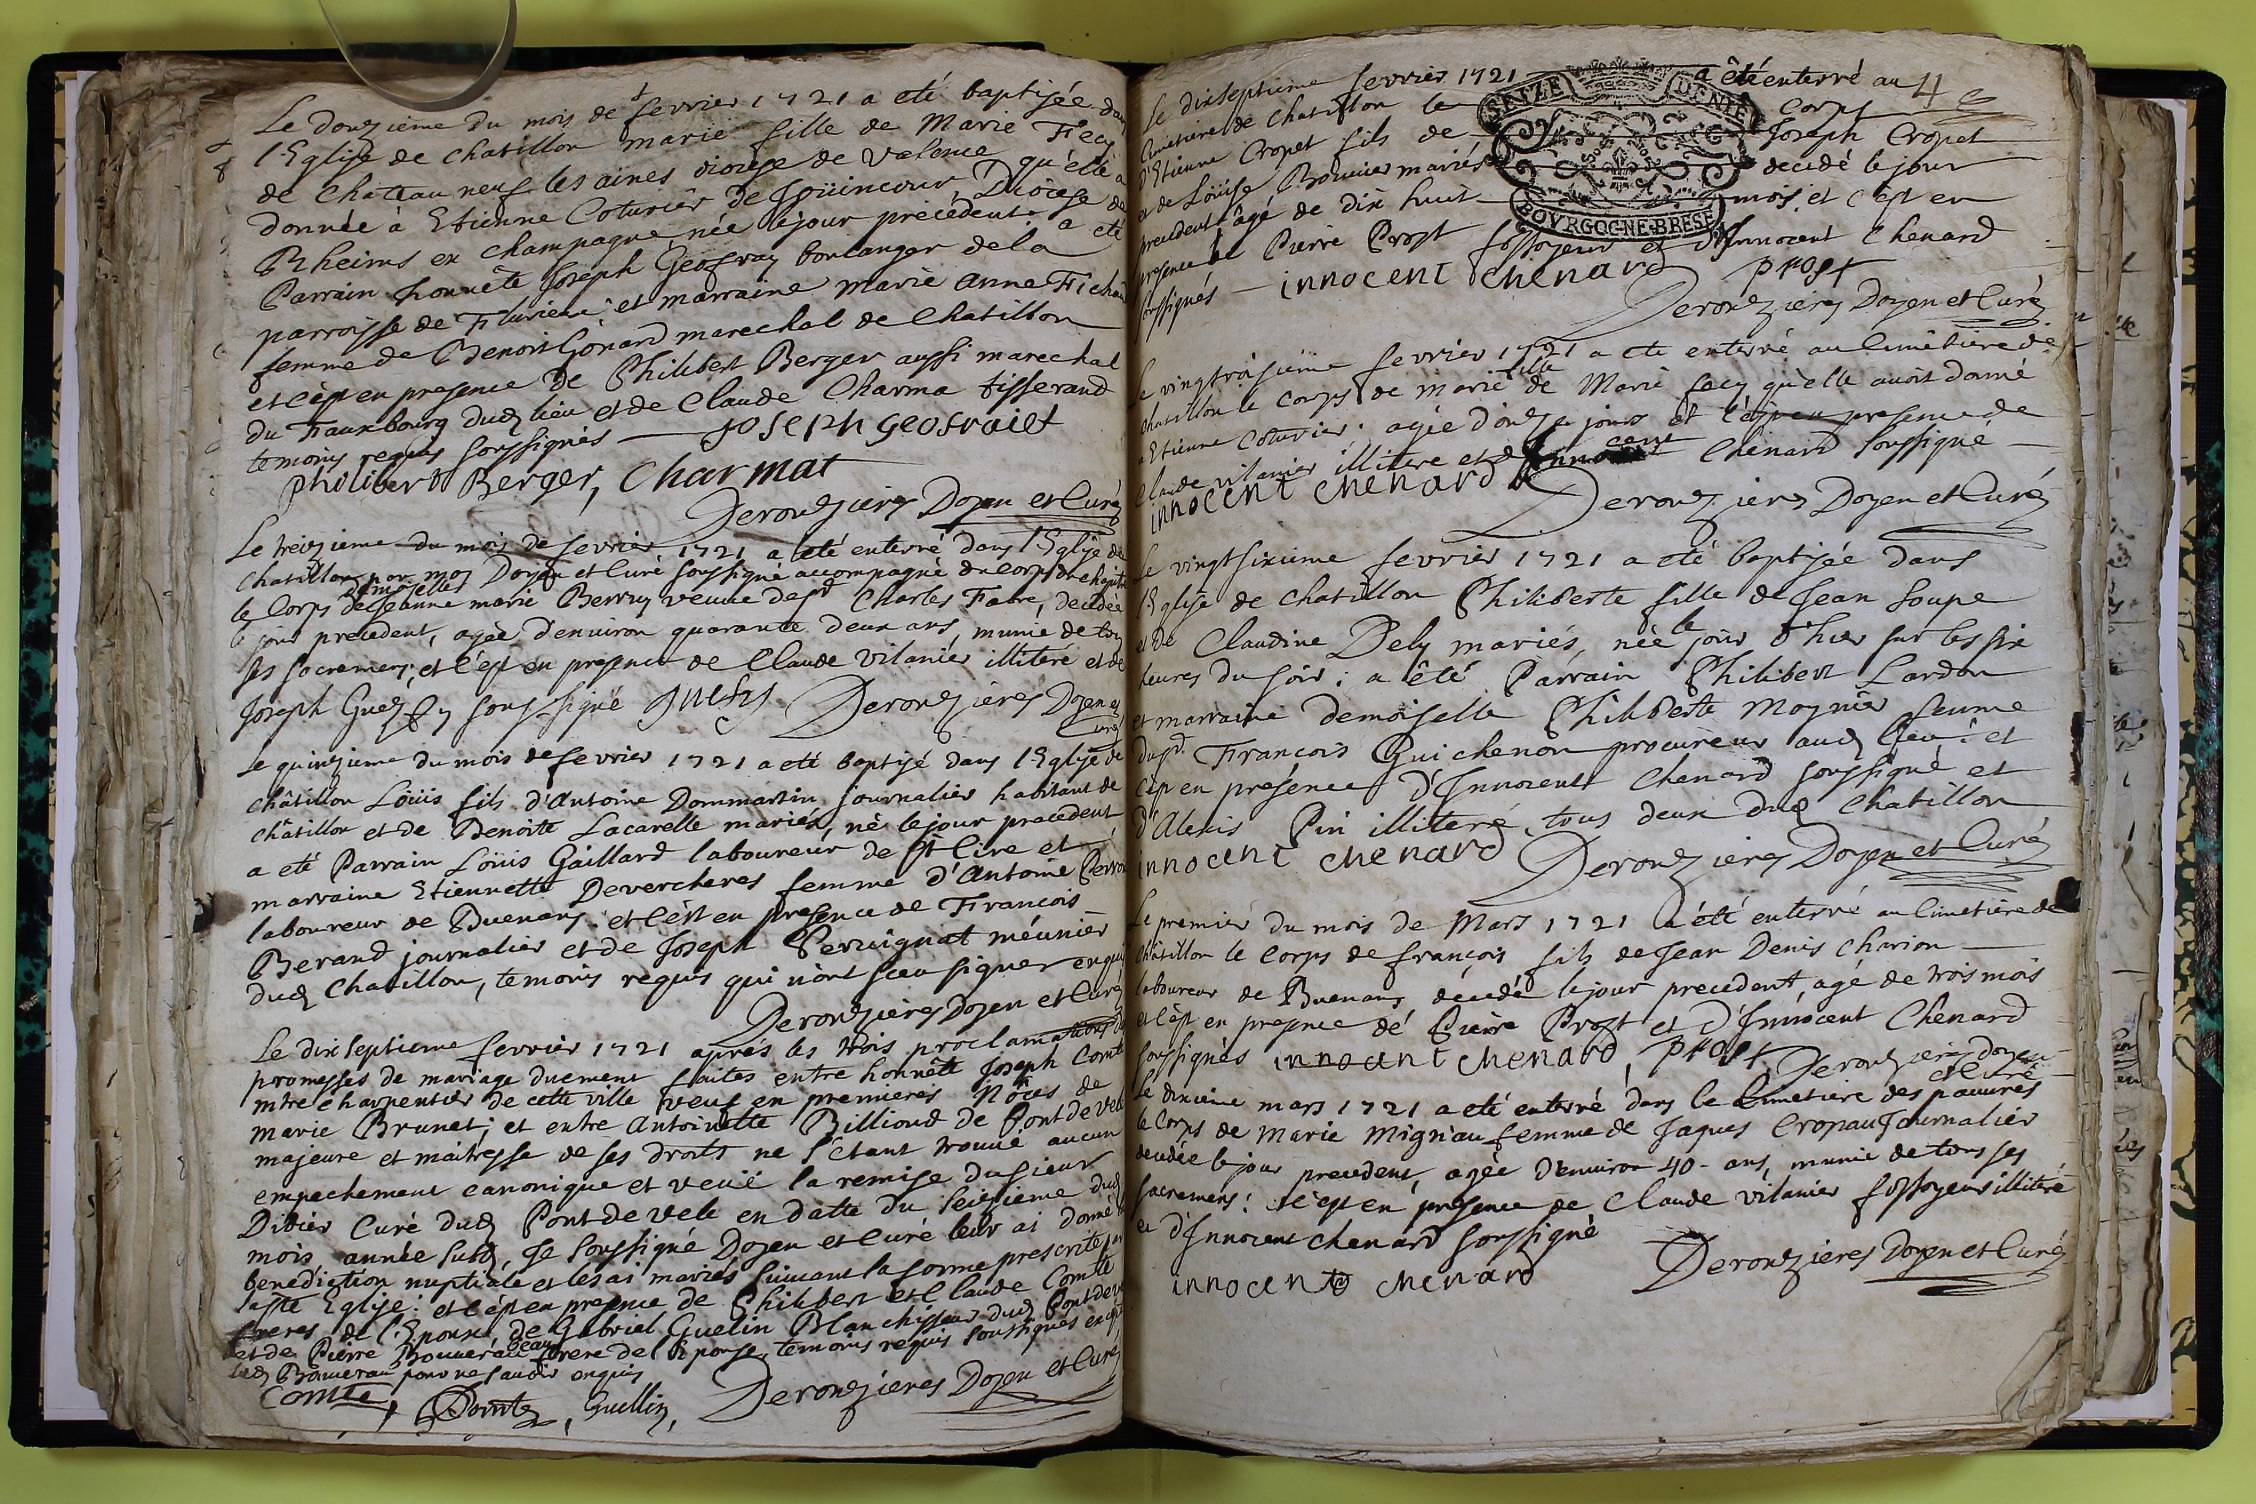 Le douzième du mois de fevrier 1721 a eté baptisée dans
l'Eglise de chatillon marie fille de Marie Fecy
de Chateau neuf les aines diocése de valence qu'elle a
donnée à Etienne Coturier de Diocèse de
Rheims en champagne née le jour précédent. a eté
Parrain honnête Joseph Geofray boulanger de la
parroisse de et marraine marie Anne
femme de Benoit Gonard marechal de Chatillon
et c'est en presence de Philibert Berger aussi marechal
du Fauxbourg dud lieu et de Claude Charma tisserand
temoins requis soussignés joseph geofraiet
philibert Berger, Charmat
Derouzieres Doyen et Curé
Le treizieme du mois de fevrier 1721 a eté enterré dans l'Eglise de
Chatillon par moy Doyen et Curé soussigné accompagné du corps du chapitre
le Corps de demoiselle Jeanne marie Berruy veuve de sr Charles Fabre, decedée
le jour precedent, agée d'environ quarante deux ans, munie de tous
ses sacremens, et c'est en presence de Claude vilanier illiteré et de
Joseph soussigné Derouzieres Doyen et
Curé
Le quinzieme du mois de fevrier 1721 a eté baptisé dans l'Eglise de
châtillon Loüis fils d'Antoine Dommartin journalier habitant de
châtillon et de Benoite Lacarelle mariés, né le jour precedent
a eté Parrain Loüis Gaillard laboureur de St Cire et
marraine Etiennette Devercheres femme d'Antoine Perron
laboureur de Buenans. et c'est en presence de François
Berand journalier et de Joseph Peruignat méunier
dud Chatillon, temoins requis qui n'ont sceu signer enquis
Derouzieres Doyen et Curé
Le dix septieme fevrier 1721 aprés les trois proclamations de
promesses de mariage duement faites entre honnête Joseph Comte
mtre charpentier de cette ville veuf en premieres Nôces de
marie Brunet; et entre Antoinette Billioud de Pont de vele
majeure et maitresse de ses droits ne s'étant trouvé aucun
empechement canonique et veüe la remise du sieur
Didier Curé dud Pont de vele en datte du seizieme dud
mois année susd, Je soussigné Doyen et Curé leur ai donné la
benediction nuptiale et les ai mariés suivant la forme prescrite par
laste Eglise: et c'est en presence de Philibert et Claude Comte
freres de l'Epoux, de Gabriel Guelin Blanchisseur dud Pont de vele
et de Pierre Bouverau beau frere de l'Epouse, temoins requis soussignés excepté
led Bouverau pour ne savoir enquis
Comte, Comte, Guellin, Derouzieres Doyen et Curé
Le dixseptieme fevrier 1721 a été enterré au 4
Cimetiere de Chatillon le corps
d'Etienne Cropet fils de Joseph Cropet
et de Loüise Bouvier mariés decedé le jour
precedent âgé de dix huit mois. et c'est en
presence de Pierre Prost fossoyeur et d'Innocent Chenard
soussignés innocent chenard prost
Derouzieres Doyen et Curé
SEIZE DENIE
BOVRGOGNE·BRESE
Le vingtroisieme fevrier 1721 a eté enterré au Cimétiere de
chatillon le corps de marie fille de Marie fecy qu'elle avoit donné
a Etienne Coturier. agée d'onze jours et c'est en presence de
Claude vilanier illitere et d'Innocent Chenard soussigné
innocent chenard Derouzieres Doyen et Curé
Le vingtsixieme fevrier 1721 a eté baptisée dans
l'Eglise de chatillon Philiberte fille de Jean Soupe
et de Claudine Dely mariés, née le jour d'hier sur les six
heures du soir; a été Parrain Philibert Lardon
et marraine demoiselle Philiberte moynier femme
du sr. François Guichenon procureur aud lieu: et
c'est en présence d'Innocent Chenard soussigné et
d'Alexis Pin illiteré, tous deux dud Chatillon
innocent chenard Derouzieres Doyen et Curé
Le premier du mois de Mars 1721 a été enterré au Cimetiere de
Châtillon le Corps de françois fils de Jean Denis Charion
laboureur de Buenans decedé le jour precedent, agé de trois mois
et c'est en presence de Pierre Prost et d'Innocent Chenard
soussignés innocent chenard, prost, Derouzieres doyen
et Curé
Le dixieme mars 1721 a eté enterré dans le Cimetiere des pauvres
le Corps de Marie Mignau femme de Jaques Cropau Journalier
decedée le jour precedent, agée d'environ 40 ans, munie de tous ses
sacremens: c'est en presence de Claude vilanier fossoyeur illiteré
et d'Innocent chenard soussigné
innocent chenard Derouzieres Doyen et Curé